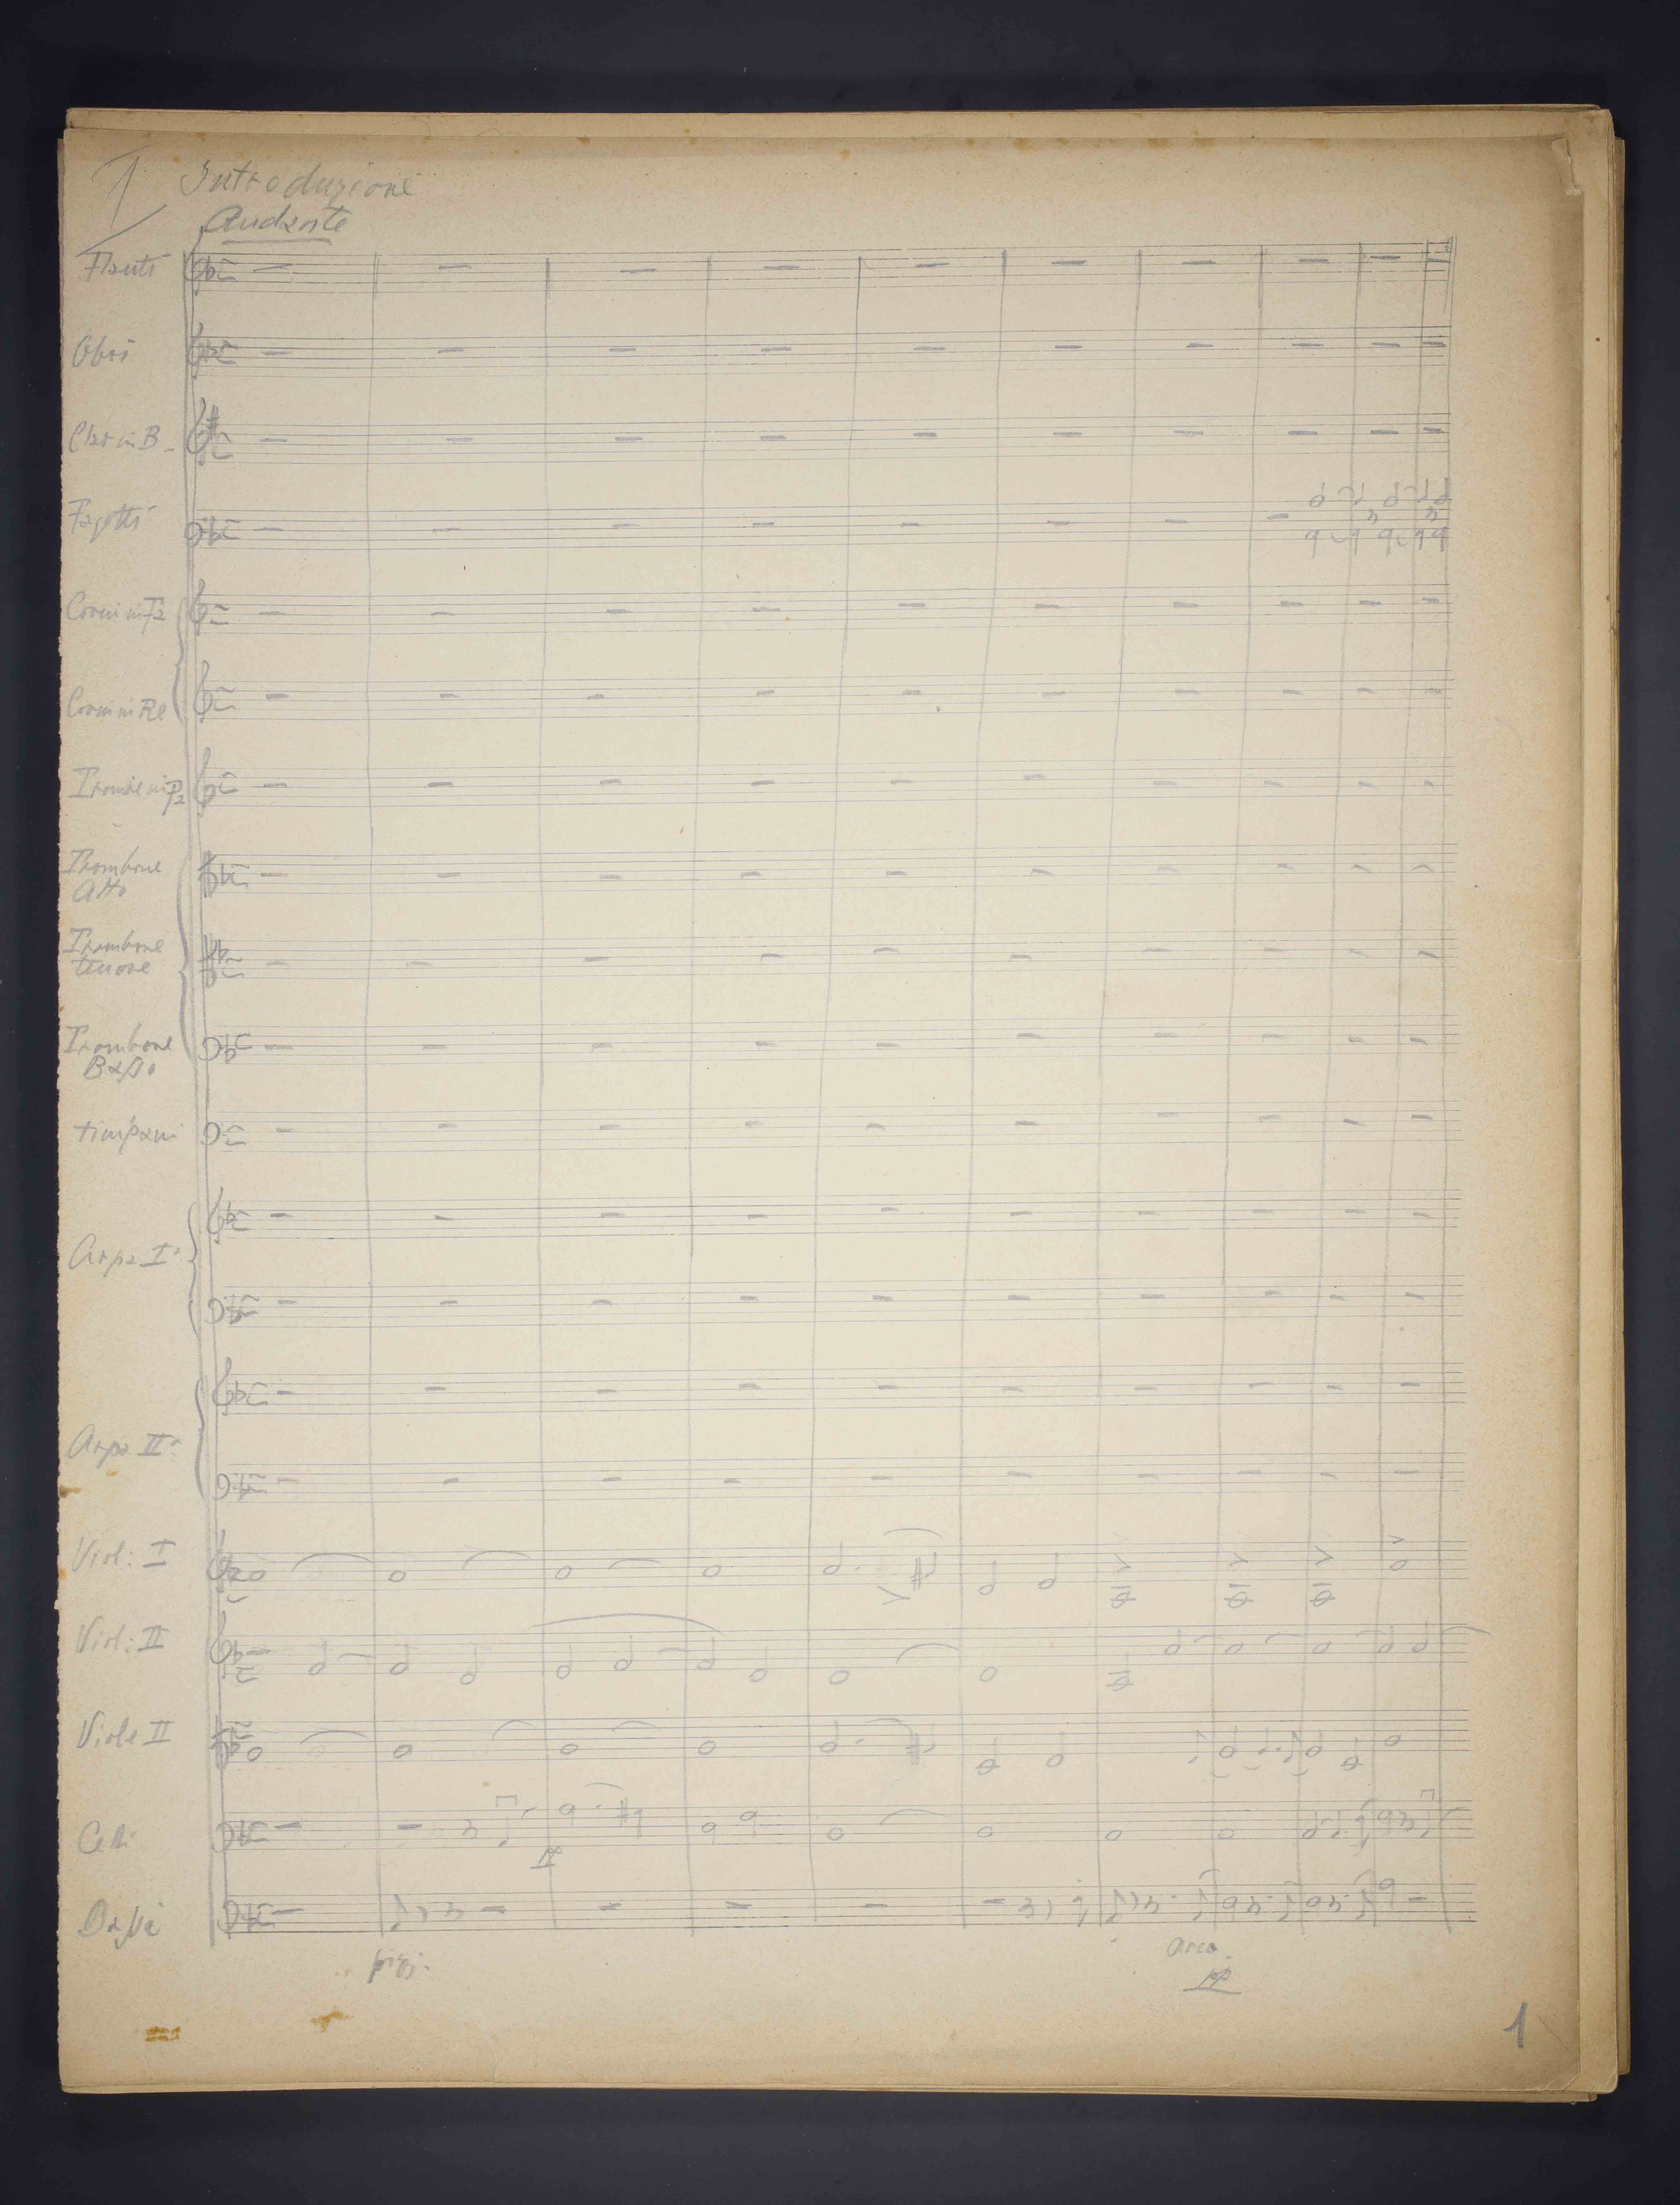 I Introduzione
Andante
Flauti
Oboi
Clar in B
Fagotti
Corni in Fa
Corni in Re
Trombe in Fa
Trombone
Alto
Trombone
tenore
Trombone
Basso
timpani
Arpa Iª
Arpa IIª
Viol: I
Viol: II
Viole II
Celli
II
Bassi
pizz.
arco
pp
1